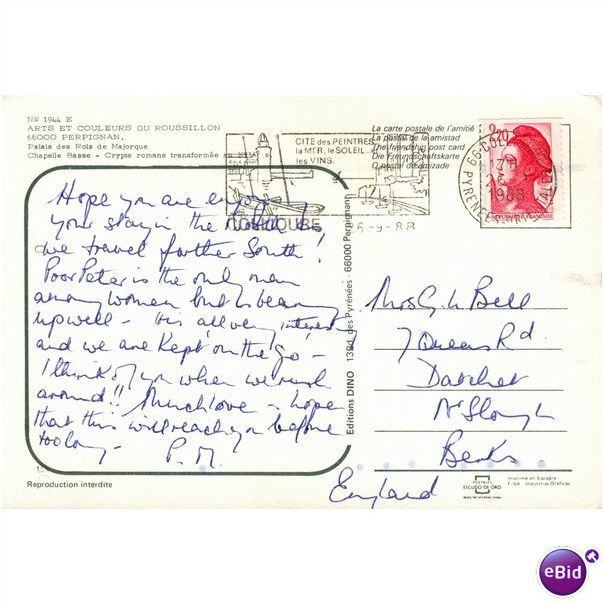 Nº 1944 E
ARTS ET COULEURS DU ROUSSILLON
66000 PERPIGNAN.
Palais des Rois de Majorque
Chapelle Basse - Crypte romane transformée
CITE des PEINTRES
la MER, le SOLEIL
les VINS.
COLLIOURE
6-9-88
La carte postale de l'amitié
La postal de la amistad
The friendship post card
Die Freundschaftskarte
O postal de amizade
2,20
1988
66 PYRENEES
Hope you are enjoying
your stay in the
we travel further South!
Poor Peter is the only man
among women but is bearing
up well - its all very interest
and we are kept on the go -
I think of you when we rush
around!! Much love - hope
that this will reach you before
too long - P.M.
Editions DINO 13Bd. des Pyrénées - 66000 Perpignan
Mrs G. W Bell
7 Queens Rd.
Datchet
Nr Slough
Berks
England
Reproduction interdite
POSTALES
ESCUDO DE ORO
Imprimé en Espagne
FISA Industrias Gráficas
eBid